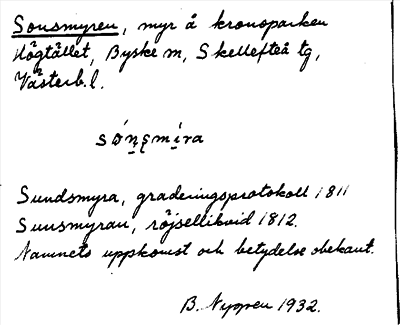 Sonsmyren, myr å kronoparken
Högtället, Byske m, Skellefteå tg,
Västerb. l.
Sundsmyra, graderingsprotokoll 1811
Sunsmyran, röjsellikvid 1812.
Namnets uppkomst och betydelse obekant.
B. Nygren 1932.